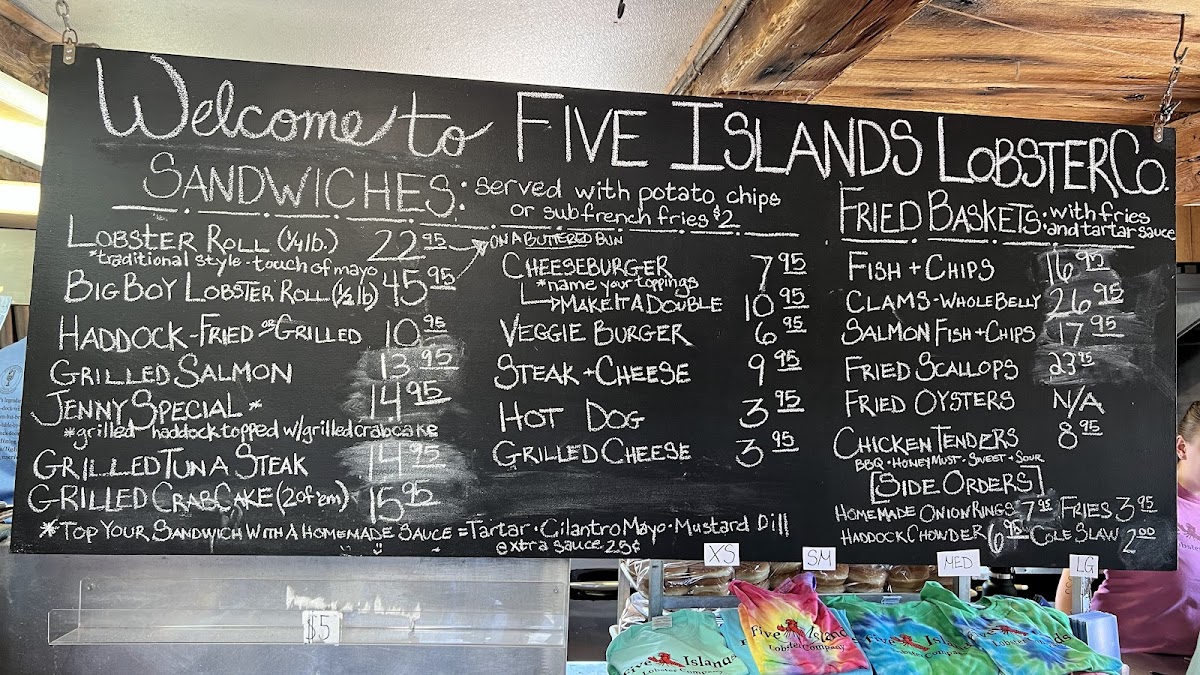 Welcome to FIVE ISLANDS LOBSTER CO.
SANDWICHES: served with potato chips
or sub french fries $2
LOBSTER ROLL (1/4 lb.) 22.95 ON A BUTTERED BUN
*traditional style - touch of mayo
BIG BOY LOBSTER ROLL (1/2 lb) 45.95
HADDOCK - FRIED OR GRILLED 10.95
GRILLED SALMON 13.95
JENNY SPECIAL * 14.95
*grilled haddock topped w/grilled crabcake
GRILLED TUNA STEAK 14.95
GRILLED CRABCAKE (2 of 'em) 15.95
CHEESEBURGER 7.95
*name your toppings
MAKE IT A DOUBLE 10.95
VEGGIE BURGER 6.95
STEAK + CHEESE 9.95
HOT DOG 3.95
GRILLED CHEESE 3.95
*TOP YOUR SANDWICH WITH A HOMEMADE SAUCE = Tartar · Cilantro Mayo · Mustard Dill
extra sauce 25¢
FRIED BASKETS: with fries
and tartar sauce
FISH + CHIPS 16.95
CLAMS - WHOLE BELLY 26.95
SALMON FISH + CHIPS 17.95
FRIED SCALLOPS 23.95
FRIED OYSTERS N/A
CHICKEN TENDERS 8.95
BBQ · HONEY MUST · SWEET + SOUR
[SIDE ORDERS]
HOMEMADE ONION RINGS 7.95 FRIES 3.95
HADDOCK CHOWDER 6.95 COLE SLAW 2.00
XS
SM
MED
LG
$5
Five Islands
Lobster Company
Five Island
Lobster Company
Five Island
Lobster Company
Islands
Lobster Company